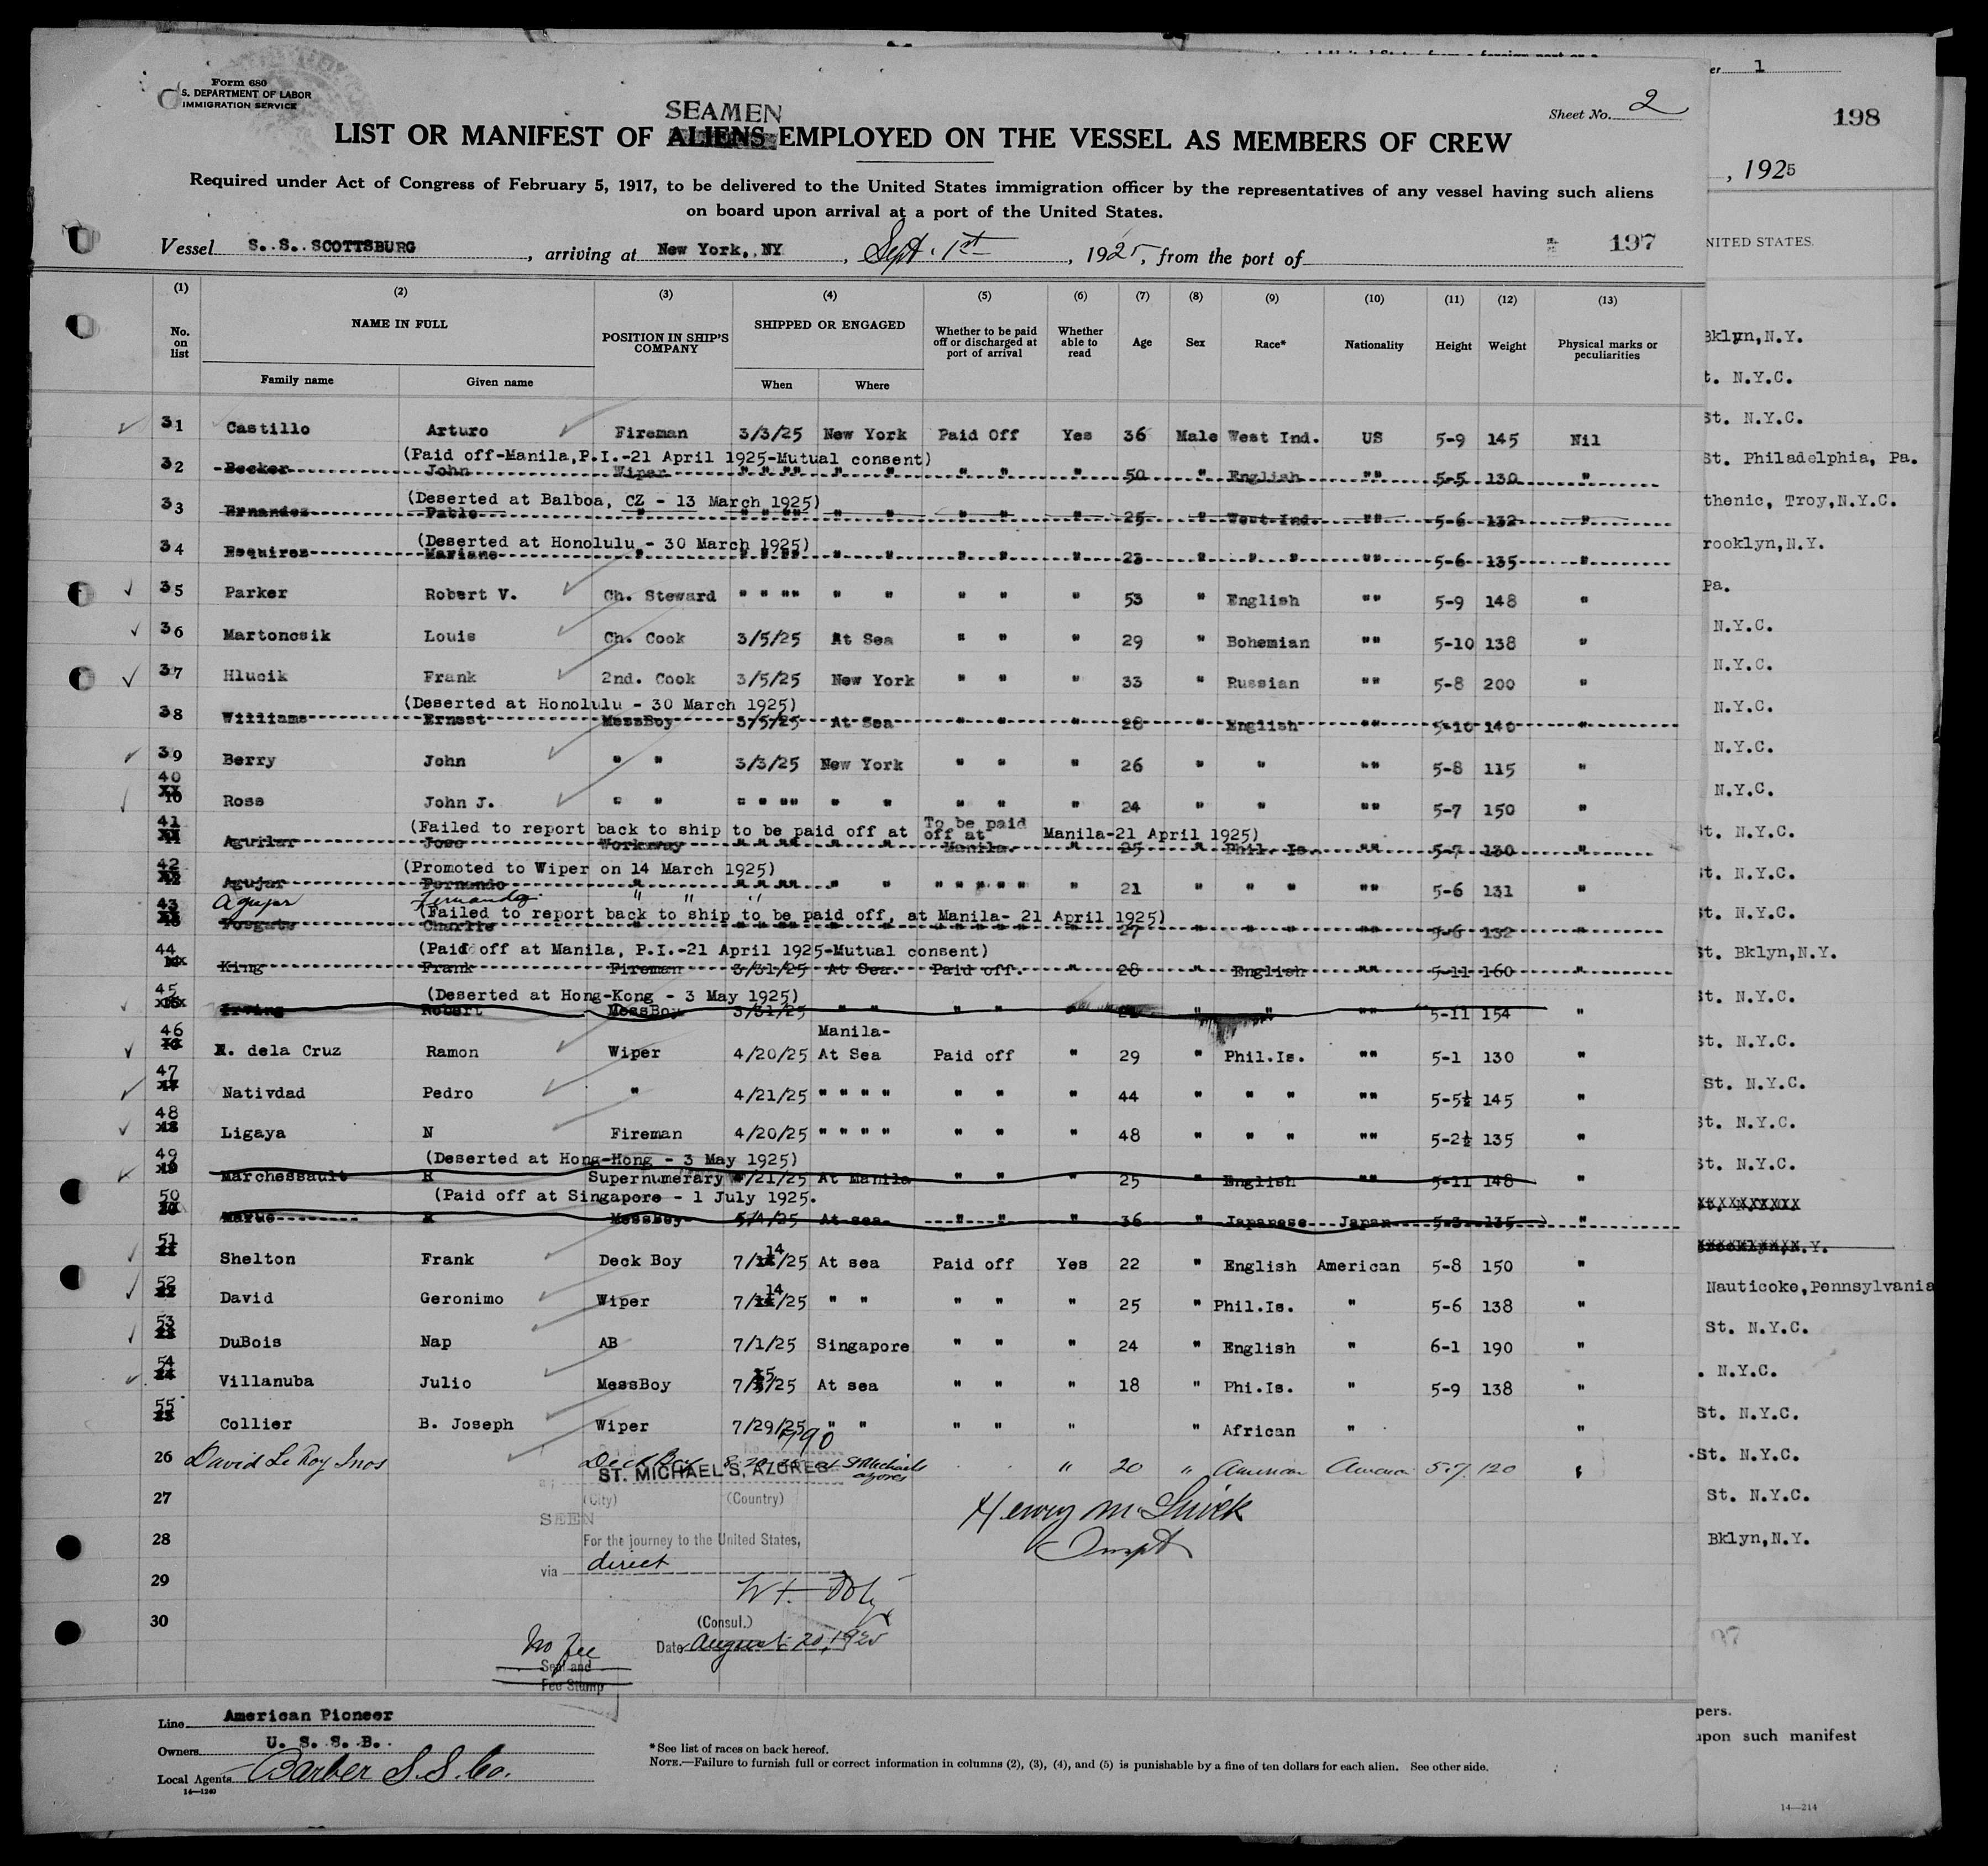 Form 680
S. DEPARTMENT OF LABOR
IMMIGRATION SERVICE
SEAMEN
Sheet No. 2
LIST OR MANIFEST OF ALIENS EMPLOYED ON THE VESSEL AS MEMBERS OF CREW
Required under Act of Congress of February 5, 1917, to be delivered to the United States immigration officer by the representatives of any vessel having such aliens
on board upon arrival at a port of the United States.
Vessel S. S. SCOTTSBURG, arriving at New York, NY, Sept. 1st, 1925, from the port of
197
(1) (2) (3) (4) (5) (6) (7) (8) (9) (10) (11) (12) (13)
No. on list NAME IN FULL POSITION IN SHIP'S COMPANY SHIPPED OR ENGAGED Whether to be paid off or discharged at port of arrival Whether able to read Age Sex Race* Nationality Height Weight Physical marks or peculiarities
Family name Given name When Where
31 Castillo Arturo Fireman 3/3/25 New York Paid Off Yes 36 Male West Ind. US 5-9 145 Nil
(Paid off-Manila,P.I.-21 April 1925-Mutual consent)
32 Becker John Wiper " " "" " " " " " 50 " English "" 5-5 130 "
(Deserted at Balboa, CZ - 13 March 1925)
33 Ernandez Pablo " " " "" " " " " " 25 " West Ind. "" 5-6 132 "
(Deserted at Honolulu - 30 March 1925)
34 Esquires Mariano " " " "" " " " " " 23 " " " "" 5-6 135 "
35 Parker Robert V. Ch. Steward " " "" " " " " " 53 " English "" 5-9 148 "
36 Martoncsik Louis Ch. Cook 3/5/25 At Sea " " " 29 " Bohemian "" 5-10 138 "
37 Hlucik Frank 2nd. Cook 3/5/25 New York " " " 33 " Russian "" 5-8 200 "
(Deserted at Honolulu - 30 March 1925)
38 Williams Ernest MessBoy 3/5/25 At Sea " " " 28 " English "" 5-10 140 "
39 Berry John " " 3/3/25 New York " " " 26 " " "" 5-8 115 "
40 Ross John J. " " " " "" " " " " " 24 " " "" 5-7 150 "
(Failed to report back to ship to be paid off at Manila-21 April 1925)
41 Aguilar Jose Workaway " " "" " " To be paid off at Manila. " 25 " Phil. Is. "" 5-7 130 "
(Promoted to Wiper on 14 March 1925)
42 Agujar Fernando " " " "" " " " " " " " " 21 " " " "" 5-6 131 "
Agujar Fernando " " "
(Failed to report back to ship to be paid off, at Manila- 21 April 1925)
43 Charlie 27 " " " "" 5-6 132 "
(Paid off at Manila, P.I.-21 April 1925-Mutual consent)
44 King Frank Fireman 3/31/25 At Sea. Paid off. " 28 " English "" 5-11 160 "
(Deserted at Hong-Kong - 3 May 1925)
45 Irving Robert MessBoy 3/31/25 " " " " " " " "" 5-11 154 "
46 dela Cruz Ramon Wiper 4/20/25 Manila- At Sea Paid off " 29 " Phil.Is. "" 5-1 130 "
47 Nativdad Pedro " 4/21/25 " " " " " " " 44 " " " "" 5-5½ 145 "
48 Ligaya N Fireman 4/20/25 " " " " " " " 48 " " " "" 5-2½ 135 "
(Deserted at Hong-Hong - 3 May 1925)
49 Marchessault R Supernumerary 4/21/25 At Manila " " " 25 " English "" 5-11 148 "
(Paid off at Singapore - 1 July 1925.
50 MessBoy 5/4/25 At sea " " " 36 " Japanese Japan 5-3 135 "
51 Shelton Frank Deck Boy 7/14/25 At sea Paid off Yes 22 " English American 5-8 150 "
52 David Geronimo Wiper 7/14/25 " " " " " 25 " Phil.Is. " 5-6 138 "
53 DuBois Nap AB 7/1/25 Singapore " " " 24 " English " 6-1 190 "
54 Villanuba Julio MessBoy 7/15/25 At sea " " " 18 " Phi.Is. " 5-9 138 "
55 Collier B. Joseph Wiper 7/29/25 " " " " " " African " "
26 David Le Roy Inos Deck Boy 8-20-25 at St Michaels azores " 20 " American American 5-7 120 "
ST. MICHAEL'S, AZORES
27 (City) (Country)
SEEN
28 For the journey to the United States,
via direct
29
30 (Consul.)
Date August 20, 1925
No fee
Seal and
Fee Stamp
Line American Pioneer
Owners U. S. S. B.
Local Agents Barber S.S. Co.
14—1240
*See list of races on back hereof.
NOTE.—Failure to furnish full or correct information in columns (2), (3), (4), and (5) is punishable by a fine of ten dollars for each alien. See other side.
er 1
198
, 1925
NITED STATES.
Bklyn,N.Y.
t. N.Y.C.
St. N.Y.C.
St. Philadelphia, Pa.
thenic, Troy,N.Y.C.
rooklyn,N.Y.
Pa.
N.Y.C.
N.Y.C.
N.Y.C.
N.Y.C.
N.Y.C.
St. N.Y.C.
St. N.Y.C.
St. N.Y.C.
St. Bklyn,N.Y.
St. N.Y.C.
St. N.Y.C.
St. N.Y.C.
St. N.Y.C.
St. N.Y.C.
Nauticoke,Pennsylvania
St. N.Y.C.
. N.Y.C.
St. N.Y.C.
St. N.Y.C.
St. N.Y.C.
Bklyn,N.Y.
pers.
upon such manifest
14—214